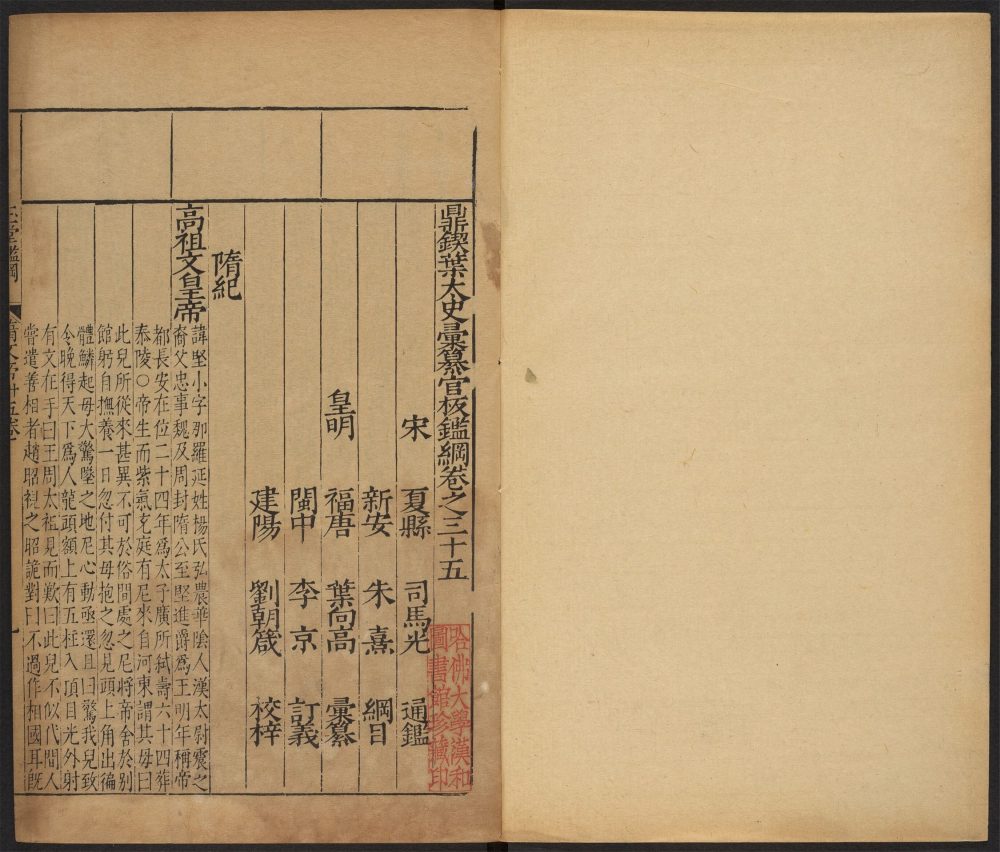 鼎鍥葉太史彚纂官板鑑綱卷之三十五
宋 夏縣 司馬光 通鑑
新安 朱熹 綱目
皇明 福唐 葉向高 彚纂
閩中 李京 訂義
建陽 劉朝箴 校梓
隋紀
高祖文皇帝
諱堅小字那羅延姓楊氏弘農華陰人漢太尉震之
裔父忠事魏及周封隋公至堅進爵爲王明年稱帝
都長安在位二十四年爲太子廣所弑壽六十四葬
泰陵○帝生而紫氣充庭有尼來自河東謂其母曰
此兒所從來甚異不可於俗間處之尼將帝舍於別
館躬自撫養一日忽付其母抱之忽見頭上角出徧
體鱗起母大驚墜之地尼心動亟還且曰驚我兒致
令晚得天下爲人龍頭額上有五柱入頂目光外射
有文在手曰王周太祖見而歎曰此兒不似代間人
嘗遣善相者趙昭視之昭詭對曰不過作相國耳旣
鑑綱
卷
哈佛大學漢和
圖書館珍藏印